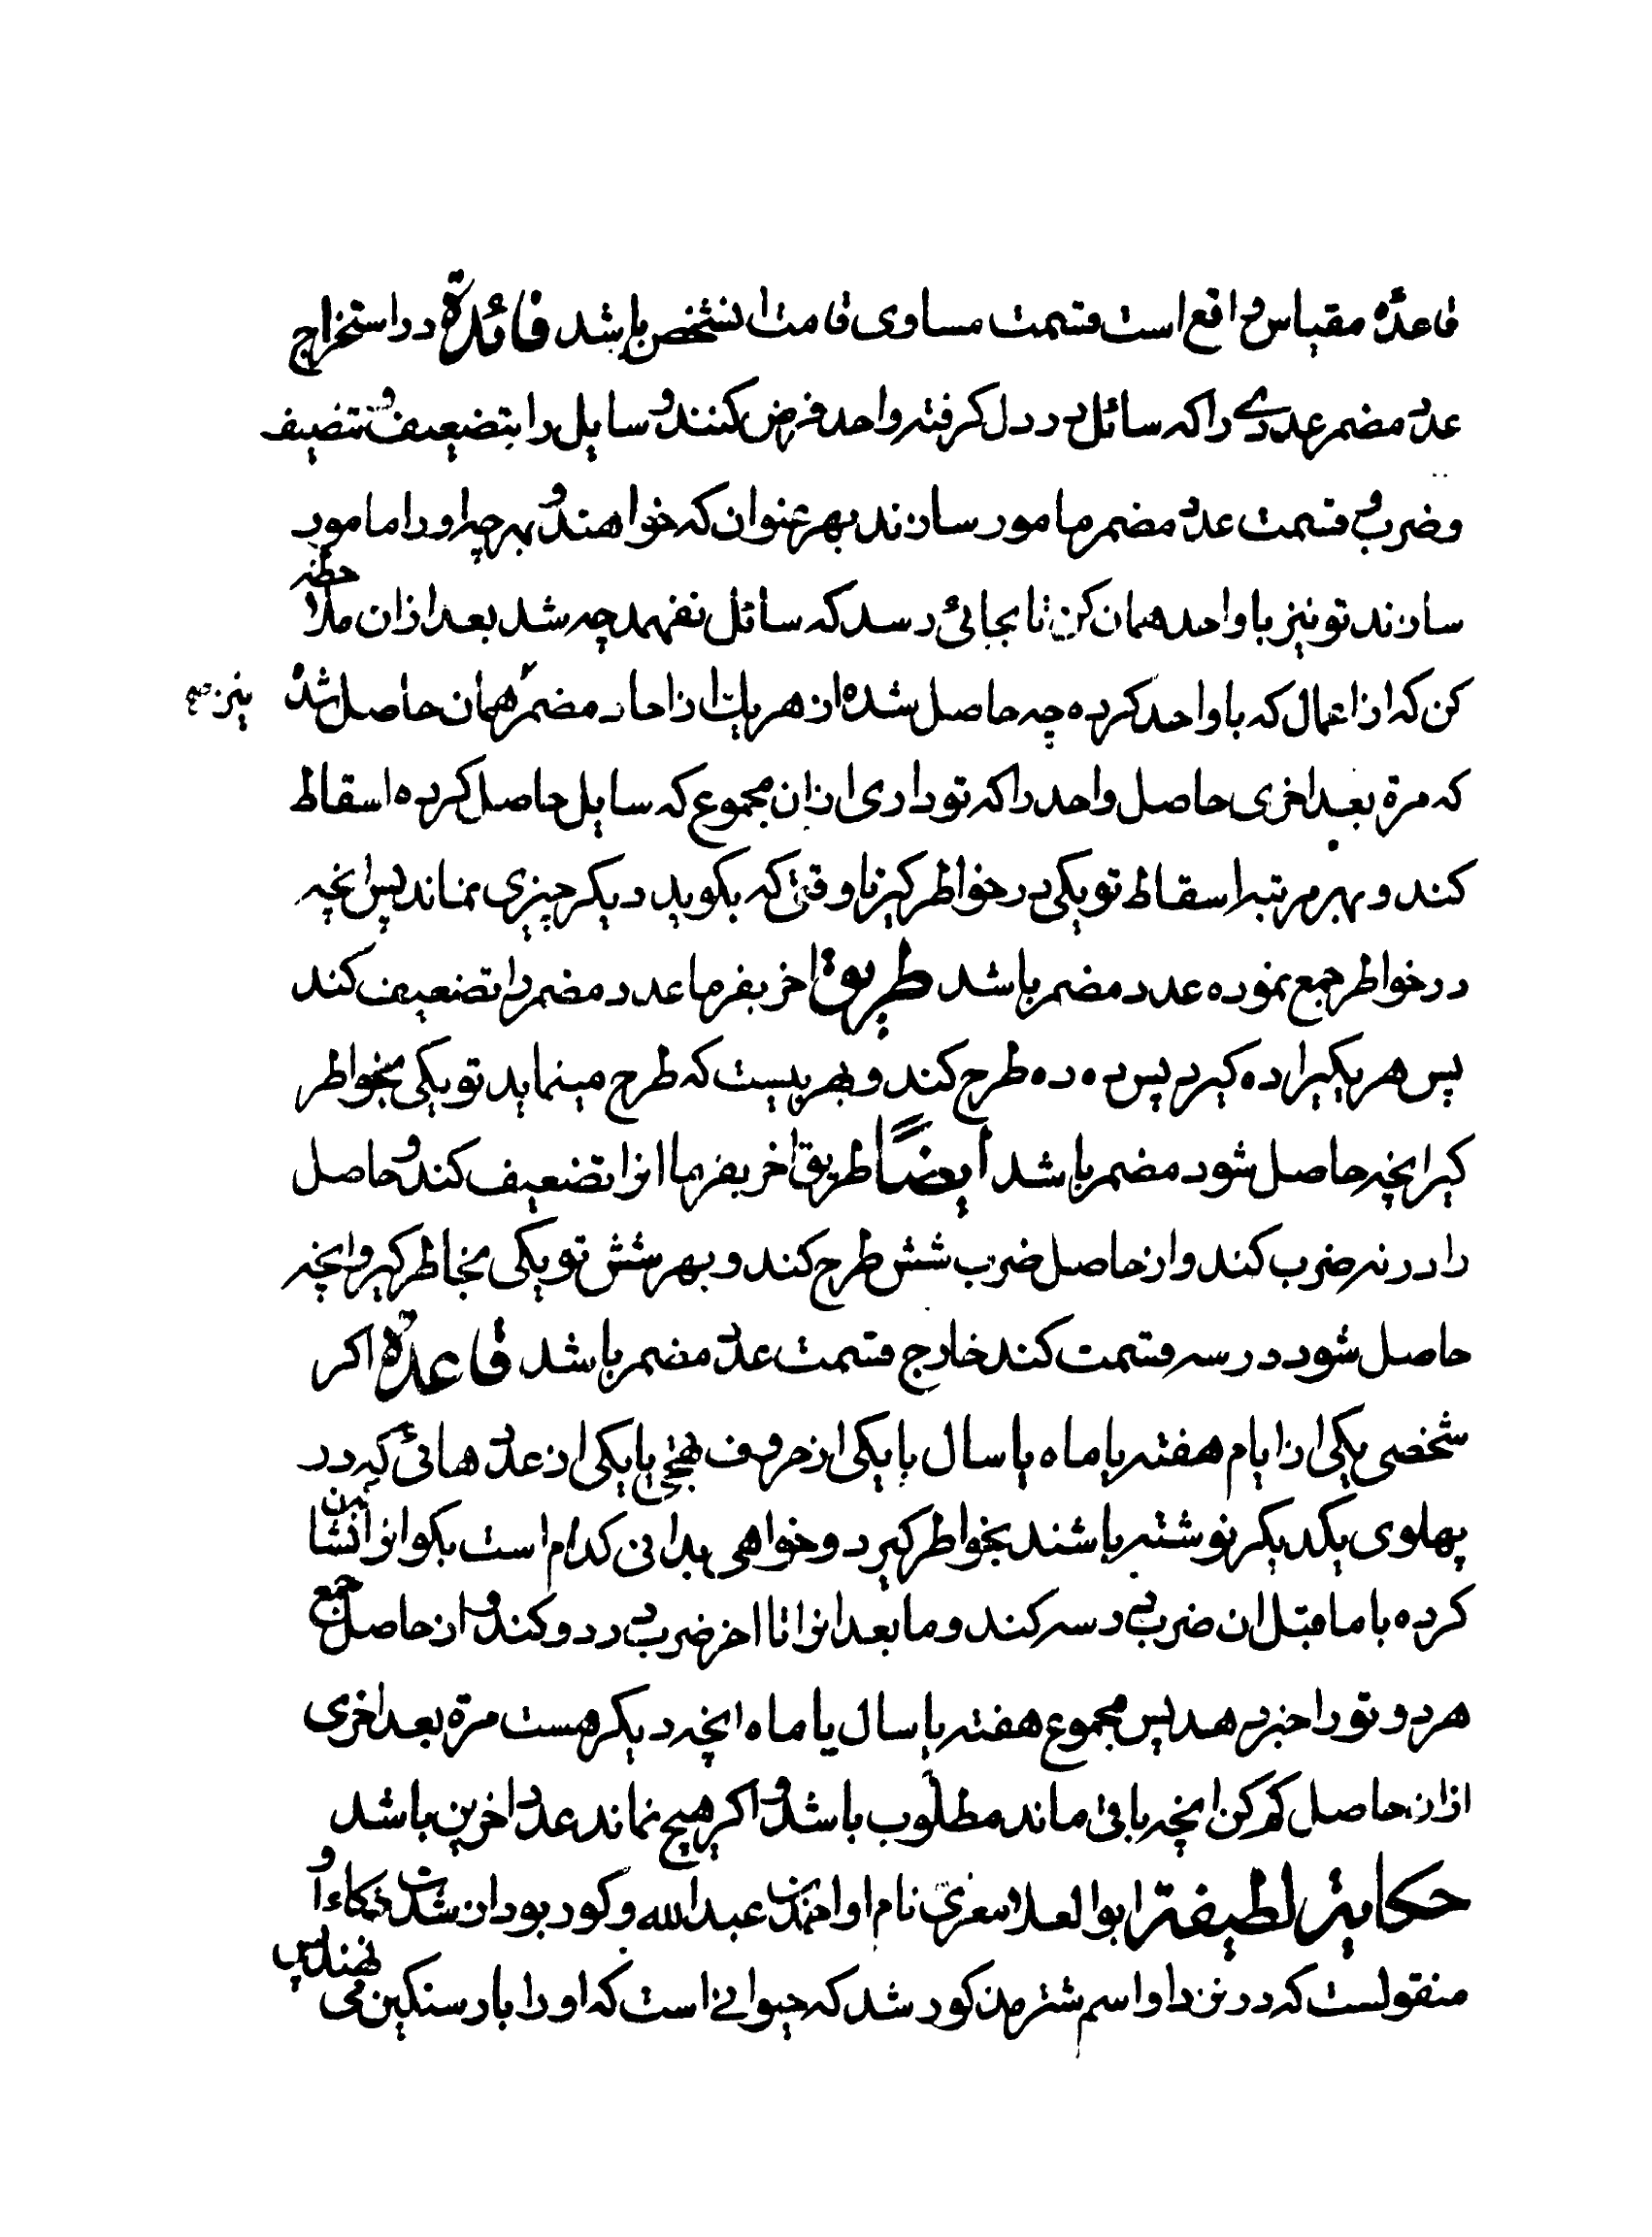 قاعدهٔ مقیاس واقع است قسمت مساوی قامت انشخص باشد فائدة در استخراج
عدد مضمر عددے را که سائل در دل کرفته واحد فرض کنند و سایل را بتضعیف و تنصیف
و ضرب و قسمت عدد مضمر مامور سازند بهر عنوان که خواهند و بهر چه او را مامور
سازند تو نیز با واحد همان کن تا بجائی رسد که سائل نفهمد چه شد بعد ازان ملاحظه
کن که از اعمال که با واحد کرده چه حاصل شده از هر یك از احاد مضمر همان حاصل شده نیز صح
که مرة بعد اخری حاصل واحد را که تو داری از ان مجموع که سایل حاصل کرده اسقاط
کند و بهر مرتبه اسقاط تو یکی در خواطر کیر تا وقتی که بکوید دیکر چیزی نماند پس انچه
در خواطر جمع نموده عدد مضمر باشد طریق اخر بفرما عدد مضمر را تضعیف کند
پس هر یکیرا ده کیرد پس ده ده طرح کند و بهر بیست که طرح مینماید تو یکی بخواطر
کیر انچه حاصل شود مضمر باشد ایضًا طریق اخر بفرما انرا تضعیف کند و حاصل
را در نه ضرب کند و از حاصل ضرب شش طرح کند و بهر شش تو یکی بخاطر کیر و انچه
حاصل شود در سه قسمت کند خارج قسمت عدد مضمر باشد قاعدة اکر
شخصی یکی از ایام هفته یا ماه یا سال یا یکی از حروف تهجی یا یکی از عدد هائی که در
پهلوی یکدیکر نوشته باشند بخواطر کیرد و خواهی بدانی کدام است بکو انرا نشان
کرده با ماقبل ان ضرب در سه کند و مابعد انرا تا اخر ضرب در دو کند و از حاصل جمع
هردو تو را خبر دهد پس مجموع هفته یا سال یا ماه انچه دیکر هست مرة بعد اخری
ازان حاصل کم کن انچه باقی ماند مطلوب باشد و اکر هیچ نماند عدد اخرین باشد
حکایة لطیفة ابو العلاء معری نام او احمد بن عبد الله و کور بود از شدت ذکاء او
منقولست که در نزد او اسم شتر مذکور شد که حیوانے است که او را بار سنکین می نهند پس